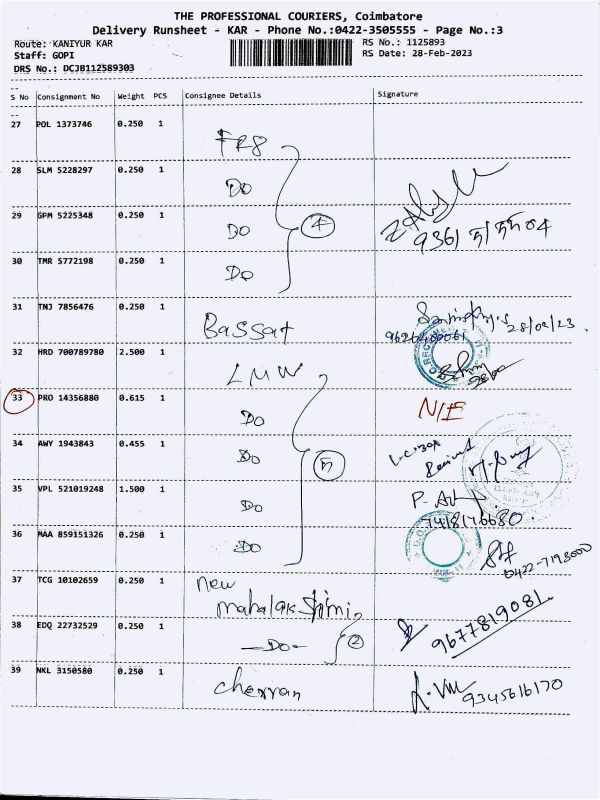 THE PROFESSIONAL COURIERS, Coimbatore
Delivery Runsheet - KAR - Phone No.:0422-3505555 - Page No.:3
Route: KANIYUR KAR RS No.: 1125893
Staff: GOPI RS Date: 28-Feb-2023
DRS No.: DCJB112589303
S No Consignment No Weight PCS Consignee Details Signature
27 POL 1373746 0.250 1 FR8
28 SLM 5228297 0.250 1 DO
29 GPM 5225348 0.250 1 DO 4
30 TMR 5772198 0.250 1 DO
31 TNJ 7856476 0.250 1 Bassat 28/02/23
32 HRD 700789780 2.500 1 LMW
33 PRO 14356880 0.615 1 DO N/E
34 AWY 1943843 0.455 1 DO 5
35 VPL 521019248 1.500 1 DO 7418176680
36 MAA 859151326 0.250 1 DO 0422-7198000
37 TCG 10102659 0.250 1 new
mahalakshimi
38 EDQ 22732529 0.250 1 -DO- 2 9677819081
39 NKL 3150580 0.250 1 cherran 9345616170